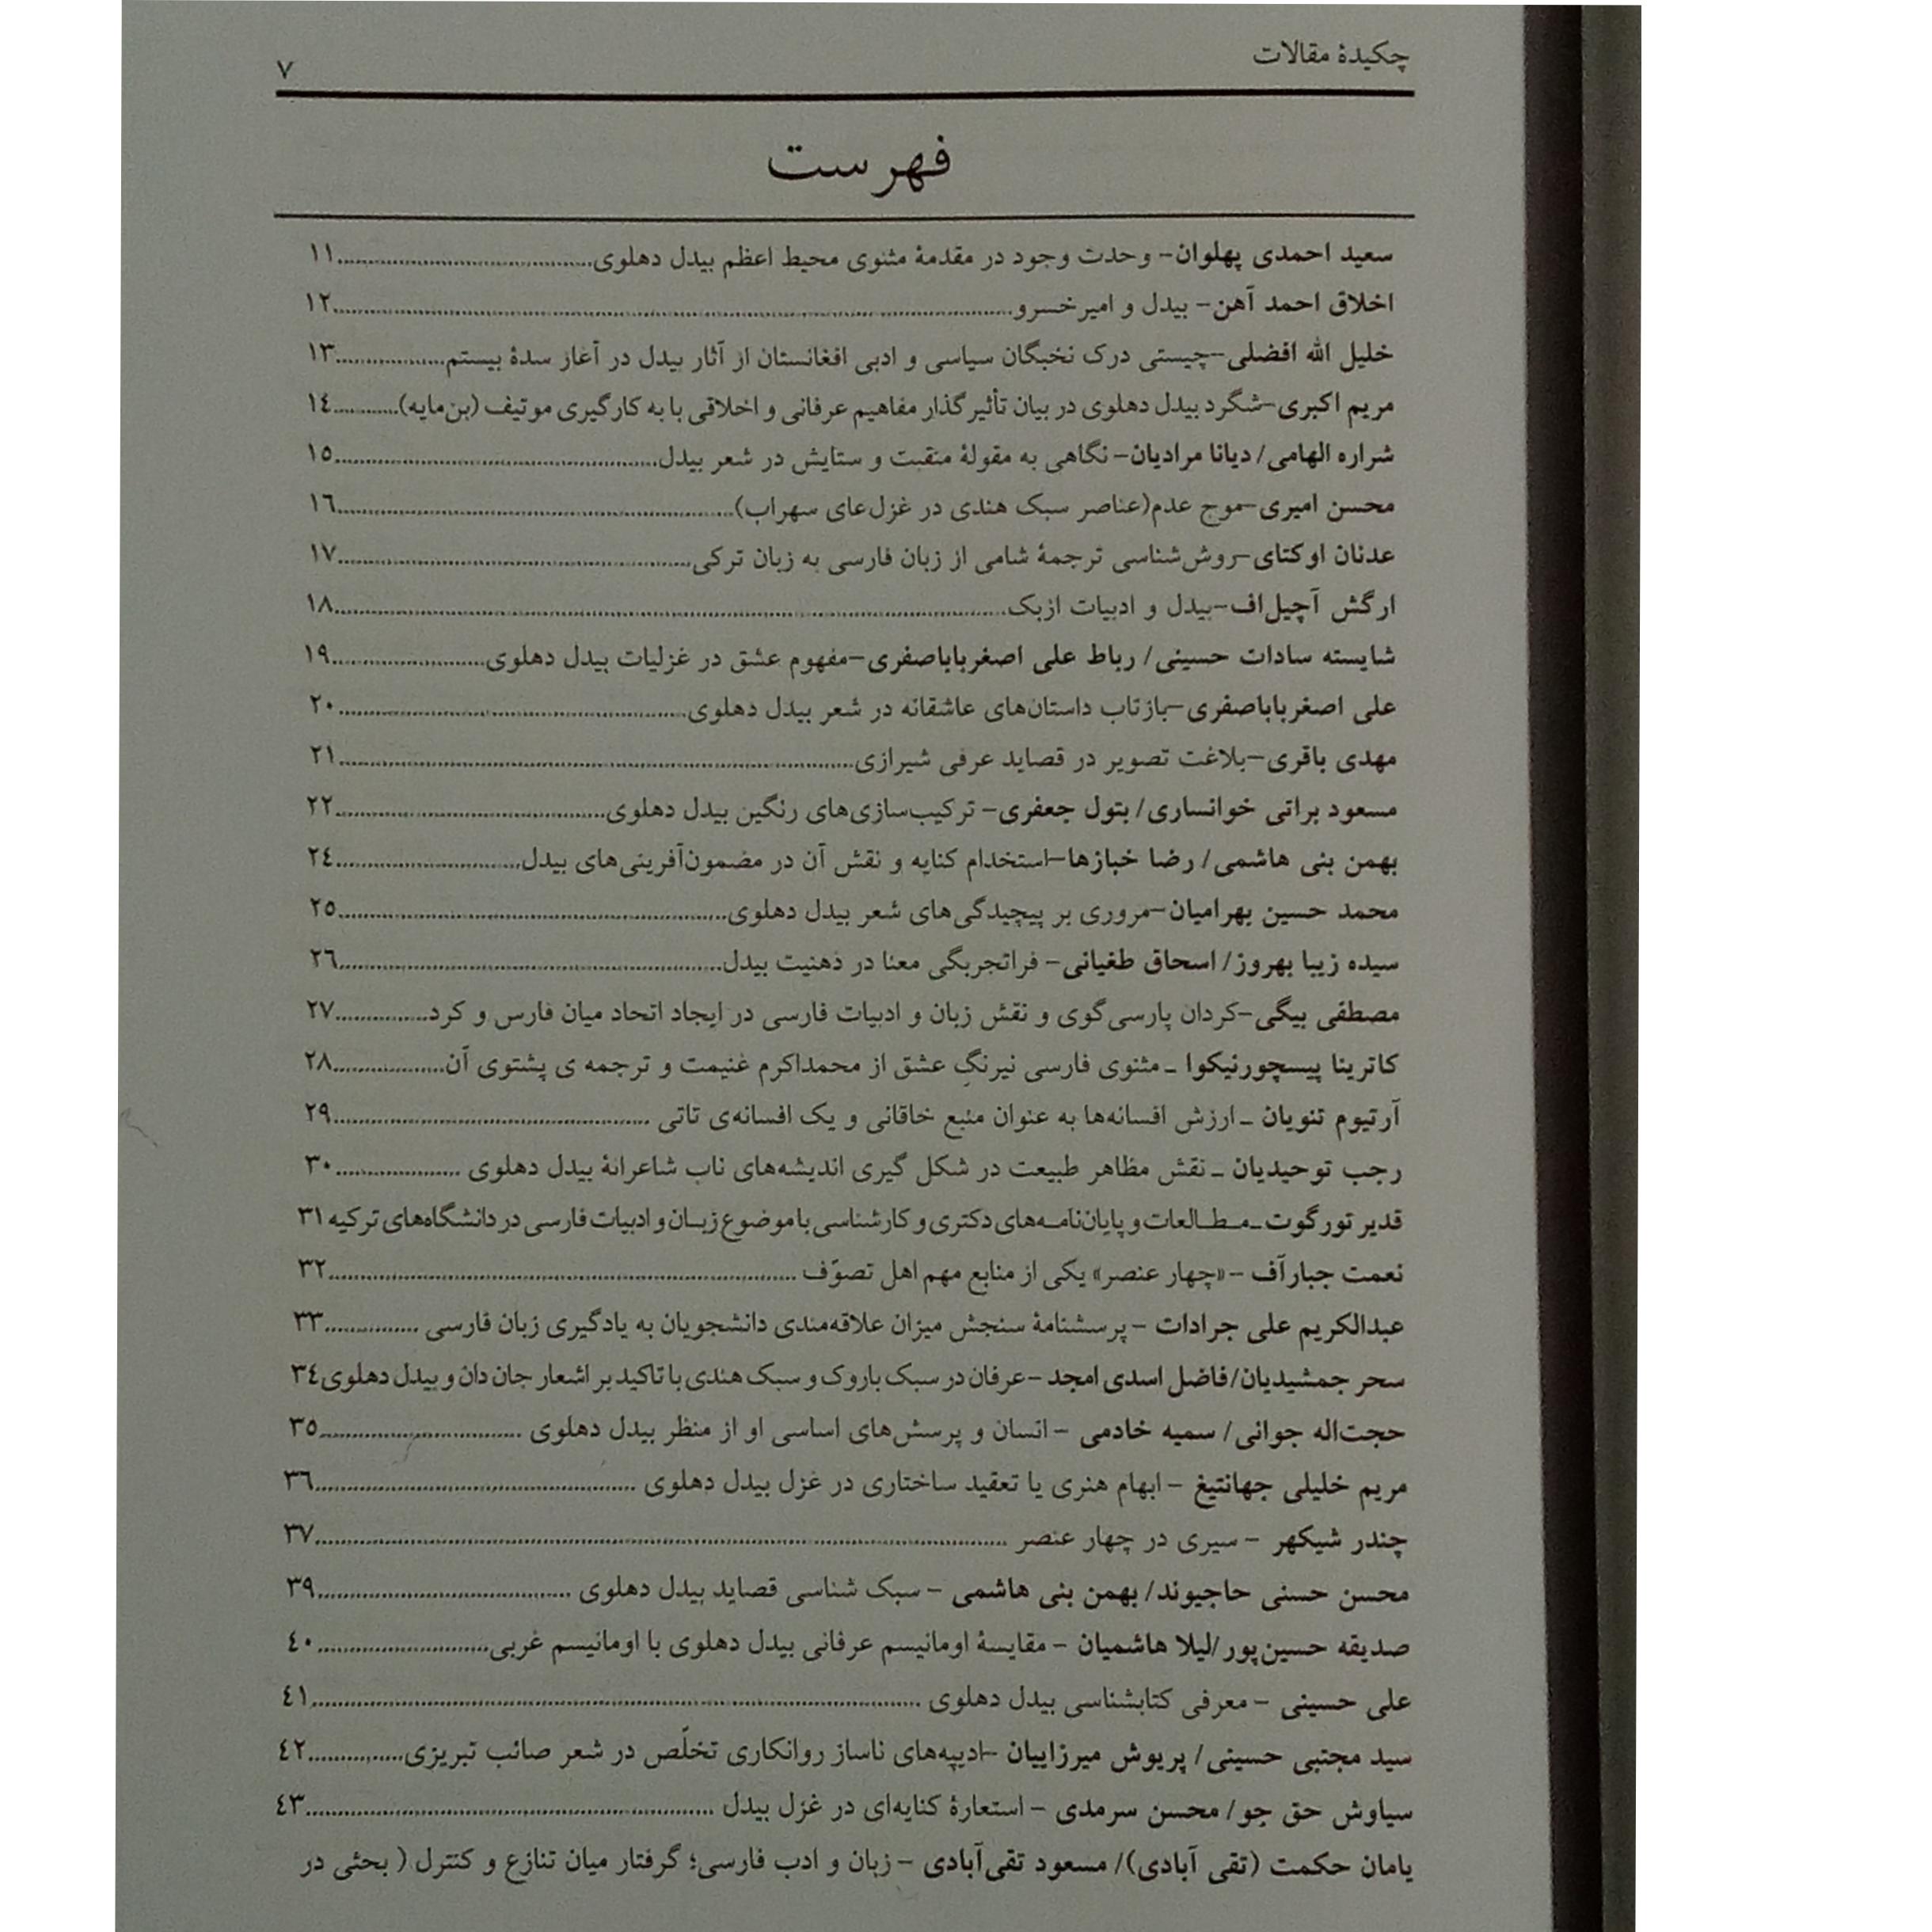 چکیدهٔ مقالات
۷
فهرست
سعید احمدی پهلوان- وحدت وجود در مقدمهٔ مثنوی محیط اعظم بیدل دهلوی..........................................۱۱
اخلاق احمد آهن- بیدل و امیرخسرو..........................................۱۲
خلیل الله افضلی-چیستی درک نخبگان سیاسی و ادبی افغانستان از آثار بیدل در آغاز سدهٔ بیستم..................۱۳
مریم اکبری-شگرد بیدل دهلوی در بیان تأثیرگذار مفاهیم عرفانی و اخلاقی با به کارگیری موتیف (بن‌مایه)...........۱٤
شراره الهامی/ دیانا مرادیان- نگاهی به مقولهٔ منقبت و ستایش در شعر بیدل..........................................۱٥
محسن امیری-موج عدم(عناصر سبک هندی در غزل‌عای سهراب)..........................................۱٦
عدنان اوکتای-روش‌شناسی ترجمهٔ شامی از زبان فارسی به زبان ترکی..........................................۱۷
ارگش آچیل‌اف-بیدل و ادبیات ازبک..........................................۱۸
شایسته سادات حسینی/ رباط علی اصغرباباصفری-مفهوم عشق در غزلیات بیدل دهلوی.........................۱۹
علی اصغرباباصفری-بازتاب داستان‌های عاشقانه در شعر بیدل دهلوی..........................................۲۰
مهدی باقری-بلاغت تصویر در قصاید عرفی شیرازی..........................................۲۱
مسعود براتی خوانساری/ بتول جعفری- ترکیب‌سازی‌های رنگین بیدل دهلوی..........................................۲۲
بهمن بنی هاشمی/ رضا خبازها-استخدام کنایه و نقش آن در مضمون‌آفرینی‌های بیدل..............................۲٤
محمد حسین بهرامیان-مروری بر پیچیدگی‌های شعر بیدل دهلوی..........................................۲٥
سیده زیبا بهروز/ اسحاق طغیانی- فراتجربگی معنا در ذهنیت بیدل..........................................۲٦
مصطفی بیگی-کردان پارسی‌گوی و نقش زبان و ادبیات فارسی در ایجاد اتحاد میان فارس و کرد...............۲۷
کاترینا پیسچورنیکوا ـ مثنوی فارسی نیرنگِ عشق از محمداکرم غنیمت و ترجمه ی پشتوی آن..................۲۸
آرتیوم تنویان ـ ارزش افسانه‌ها به عنوان منبع خاقانی و یک افسانه‌ی تاتی ..........................................۲۹
رجب توحیدیان ـ نقش مظاهر طبیعت در شکل گیری اندیشه‌های ناب شاعرانهٔ بیدل دهلوی ....................۳۰
قدیر تورگوت ـ مـطـالعات و پایان‌نامـه‌های دکتری و کارشناسی با موضوع زبـان و ادبیات فارسی در دانشگاه‌های ترکیه ۳۱
نعمت جبارآف - «چهار عنصر» یکی از منابع مهم اهل تصوّف ..........................................۳۲
عبدالکریم علی جرادات - پرسشنامهٔ سنجش میزان علاقه‌مندی دانشجویان به یادگیری زبان فارسی ...............۳۳
سحر جمشیدیان/فاضل اسدی امجد - عرفان در سبک باروک و سبک هندی با تاکید بر اشعار جان دان و بیدل دهلوی۳٤
حجت‌اله جوانی/ سمیه خادمی - انسان و پرسش‌های اساسی او از منظر بیدل دهلوی .................................۳٥
مریم خلیلی جهانتیغ - ابهام هنری یا تعقید ساختاری در غزل بیدل دهلوی ..........................................۳٦
چندر شیکهر - سیری در چهار عنصر ..........................................۳۷
محسن حسنی حاجیوند/ بهمن بنی هاشمی - سبک شناسی قصاید بیدل دهلوی ..........................................۳۹
صدیقه حسین‌پور/لیلا هاشمیان - مقایسهٔ اومانیسم عرفانی بیدل دهلوی با اومانیسم غربی............................٤۰
علی حسینی - معرفی کتابشناسی بیدل دهلوی ..........................................٤۱
سید مجتبی حسینی/ پریوش میرزاییان -ادیپه‌های ناساز روانکاری تخلّص در شعر صائب تبریزی...............٤۲
سیاوش حق جو/ محسن سرمدی - استعارهٔ کنایه‌ای در غزل بیدل ..........................................٤۳
یامان حکمت (تقی آبادی)/ مسعود تقی‌آبادی - زبان و ادب فارسی؛ گرفتار میان تنازع و کنترل ( بحثی در